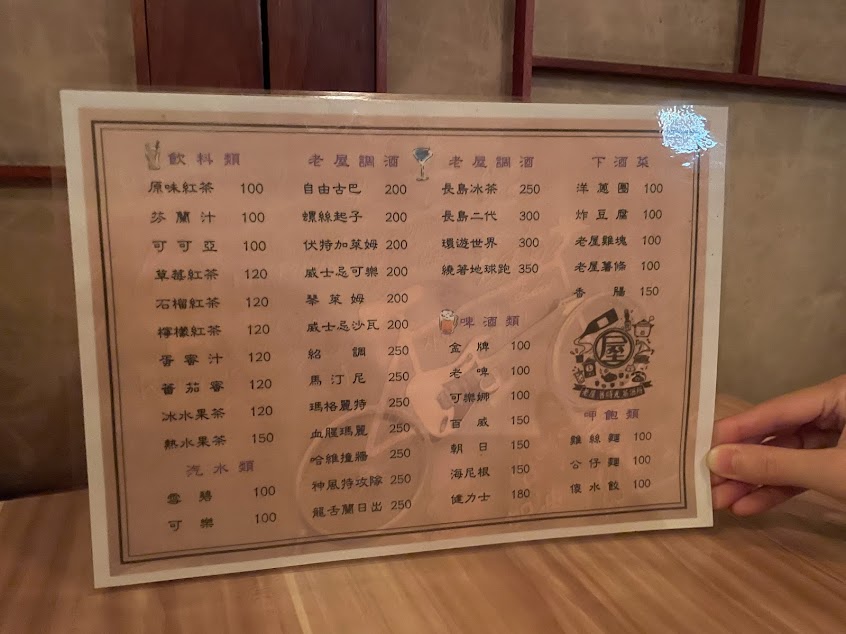 飲料類
原味紅茶 100
芬蘭汁 100
可可亞 100
草莓紅茶 120
石榴紅茶 120
檸檬紅茶 120
蛋蜜汁 120
蕃茄蜜 120
冰水果茶 120
熱水果茶 150
汽水類
雪碧 100
可樂 100
老屋調酒
自由古巴 200
螺絲起子 200
伏特加萊姆 200
威士忌可樂 200
琴萊姆 200
威士忌沙瓦 200
紹調 250
馬汀尼 250
瑪格麗特 250
血腥瑪麗 250
哈維撞牆 250
神風特攻隊 250
龍舌蘭日出 250
老屋調酒
長島冰茶 250
長島二代 300
環遊世界 300
繞著地球跑 350
啤酒類
金牌 100
老啤 100
可樂娜 100
百威 150
朝日 150
海尼根 150
健力士 180
下酒菜
洋蔥圈 100
炸豆腐 100
老屋雞塊 100
老屋薯條 100
香腸 150
屋
呷飽類
雞絲麵 100
公仔麵 100
傻水餃 100